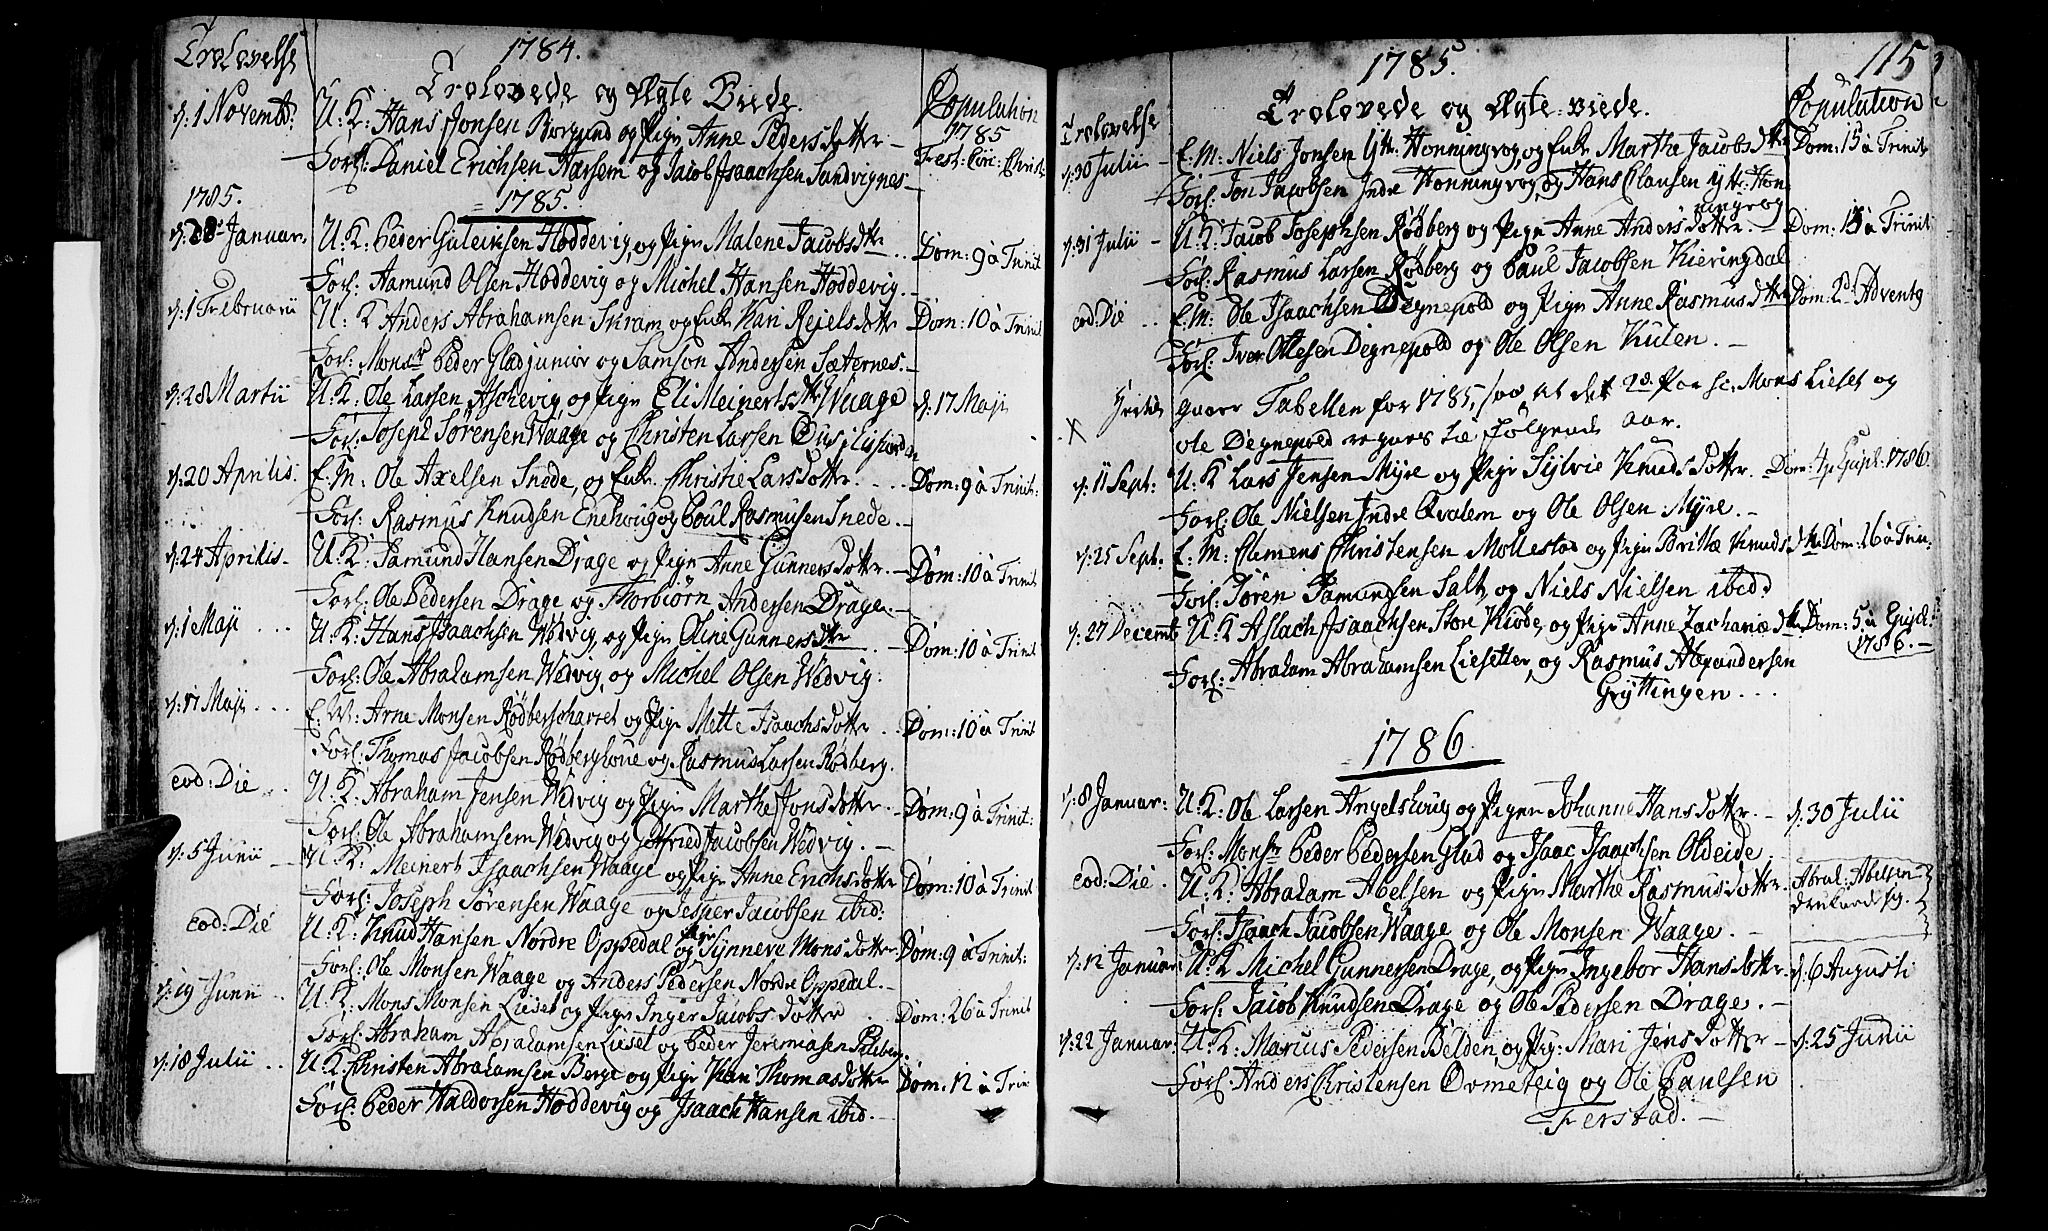 Trolovelse
1784.
Trolovede og Ægte Viede.
Copulation
1785
d: 1 Novembr:
U: K: Hans Jonsen Borgund og Pige Anne Pedersdotter
Fest: Circ: Christi
Forl: Daniel Erichsen Harsem og Jacob Isaachsen Sandvignes
1785.
1785.
d: 28 Januar:
U. K. Peder Guleiksen Hoddevig, og Pige Malene Jacobsdtr
Dom: 9 à Trinit
Forl: Aamund Olsen Hoddevig og Michel Hansen Hoddevig.
d: 1 Februarii
U. K Anders Abrahamsen Skram og Enke Kari Rejelsdotter
Dom: 10 à Trinit
Forl: Monsr Peder Glad junior og Samson Andersen Sæternes.
d: 28 Martii
U. K: Ole Larsen Aschevig og Pige Eli Meinertsdtr Waage
d: 17 Maji
Forl: Joseph Sørensen Waage og Christen Larsen
d: 20 Aprilis.
E. M. Ole Axelsen Snede, og Enke Christie Larsdotter
Dom: 9 à Trinit:
Forl: Rasmus Knudsen Enehoug og Poul Rasmusen Snede.
d: 24 Aprilis
U. K: Samund Hansen Drage og Pige Anne Gunnersdotter
Dom: 10 à Trinit
Forl: Ole Pedersen Drage, og Thorbiørn Andersen Drage.
d: 1 Maji
U: K: Hans Isaachsen Wedvig, og Pige Oline Gunnersdtr
Dom: 10 à Trinit
Forl: Ole Abrahamsen Wedvig, og Michel Olsen Wedvig.
d: 17 Maji
E. M: Arne Monsen Rødberscharret og Pige Mette Isaachsdotter
Dom: 10 à Trinit
Forl: Thomas Jacobsen Rødberghoue og Rasmus Larsen Rødberg.
eod: Die
U. K: Abraham Jensen Wedvig og Pige Marthe Jonsdotter
Dom: 9 à Trinit:
Forl: Ole Abrahamsen Wedvig og Gotfried Jacobsen Wedvig.
d: 5 Junii
U. K: Meinert Isaachsen Waage og Pige Anne Erichsdotter
Dom: 10 à Trinit
Forl: Joseph Sørensen Waage og Jesper Jacobsen ibid:
eod: Die
U. K: Knud Hansen Nordre Oppedal og Pige Synneve Monsdotter
Dom: 9 à Trinit:
Forl: Ole Monsen Waage og Anders Pedersen Nordre Oppedal.
d: 19 Junii
U. K: Mons Monsen Lieset og Pige Inger Jacobsdotter
Dom: 26 à Trinit
Forl: Abraham Abrahamsen Lieset og Peder Jeremiasen
d: 18 Julii
U. K. Christen Abrahamsen Berge og Pige Kari Thomasdotter
Dom: 12 à Trin
Forl: Peder Haldorsen Hoddevig og Isaach Hansen ibid.
115
1785.
Trolovelse
Trolovede og Ægte-viede.
Copulation
d: 30 Julii
E. M: Niels Jonsen Ytr: Honningvog, og Enke Marthe Jacobsdtr
Dom: 15 à Trinit
Forl: Jon Jacobsen Indre Honningvog, og Hans Clausen Ytr: Hon
ningvog
d: 31 Julii
U. K: Jacob Josephsen Rødberg og Pige Anne Andersdotter
Dom: 15 à Trinit
Forl: Rasmus Larsen Rødberg og Paul Jacobsen Kieringdal
eod: Die
E. M: Ole Isaachsen Degnepold og Pige Anne Rasmusdtr
Dom: 2d Adventg
Forl: Iver Ottesen Degnepold og Ole Olsen Kulen.
X
Hertil gaaer Tabellen for 1785, saa at det 2de Par sc: Mons Lieset og
Ole Degnepold regnes til følgende Aar.
d: 11 Sept:
U. K Lars Jensen Myre og Pige Sylvie Knudsdotter
Dom: 4 p Epiph: 1786.
Forl: Ole Nielsen Indre Qvalem og Ole Olsen Myre.
d: 25 Sept:
E. M: Clemens Christensen Mollestad og Pige Brithe Knudsdtr
Dom: 26 à Trin:
Forl: Søren Samundsen Salt, og Niels Nielsen ibid.
d: 27 Decembr
U. K Aslach Isaachsen Store Kiøde, og Pige Anne Zachariædtr
Dom: 5 à Epiph:
1786.
Forl: Abraham Abrahamsen Liesetter, og Rasmus Alexandersen
Gryttingen
1786.
d: 8 Januar:
U. K: Ole Larsen Angelshoug og Pigen Johanne Hansdotter
d: 30 Julii
Forl: Monsr Peder Pedersen Glad og Isaac Isaachsen Oldeide
eod: Die
U. K: Abraham Abelsen og Pige Marthe Rasmusdotter
Abrah: Abelsen
druknede sig.
Forl: Isaach Jacobsen Waage og Ole Monsen Waage.
d: 12 Januar:
U. K Michel Gunnersen Drage, og Pige Ingebor Hansdotter
d: 6 Augusti
Forl: Jacob Knudsen Drage og Ole Pedersen Drage.
d: 22 Januar:
U. K: Marius Pedersen Belden, og Pig: Mari Jensdotter
d: 25 Junii
Forl: Anders Christensen Ormeteig og Ole Paulsen
Ferstad.